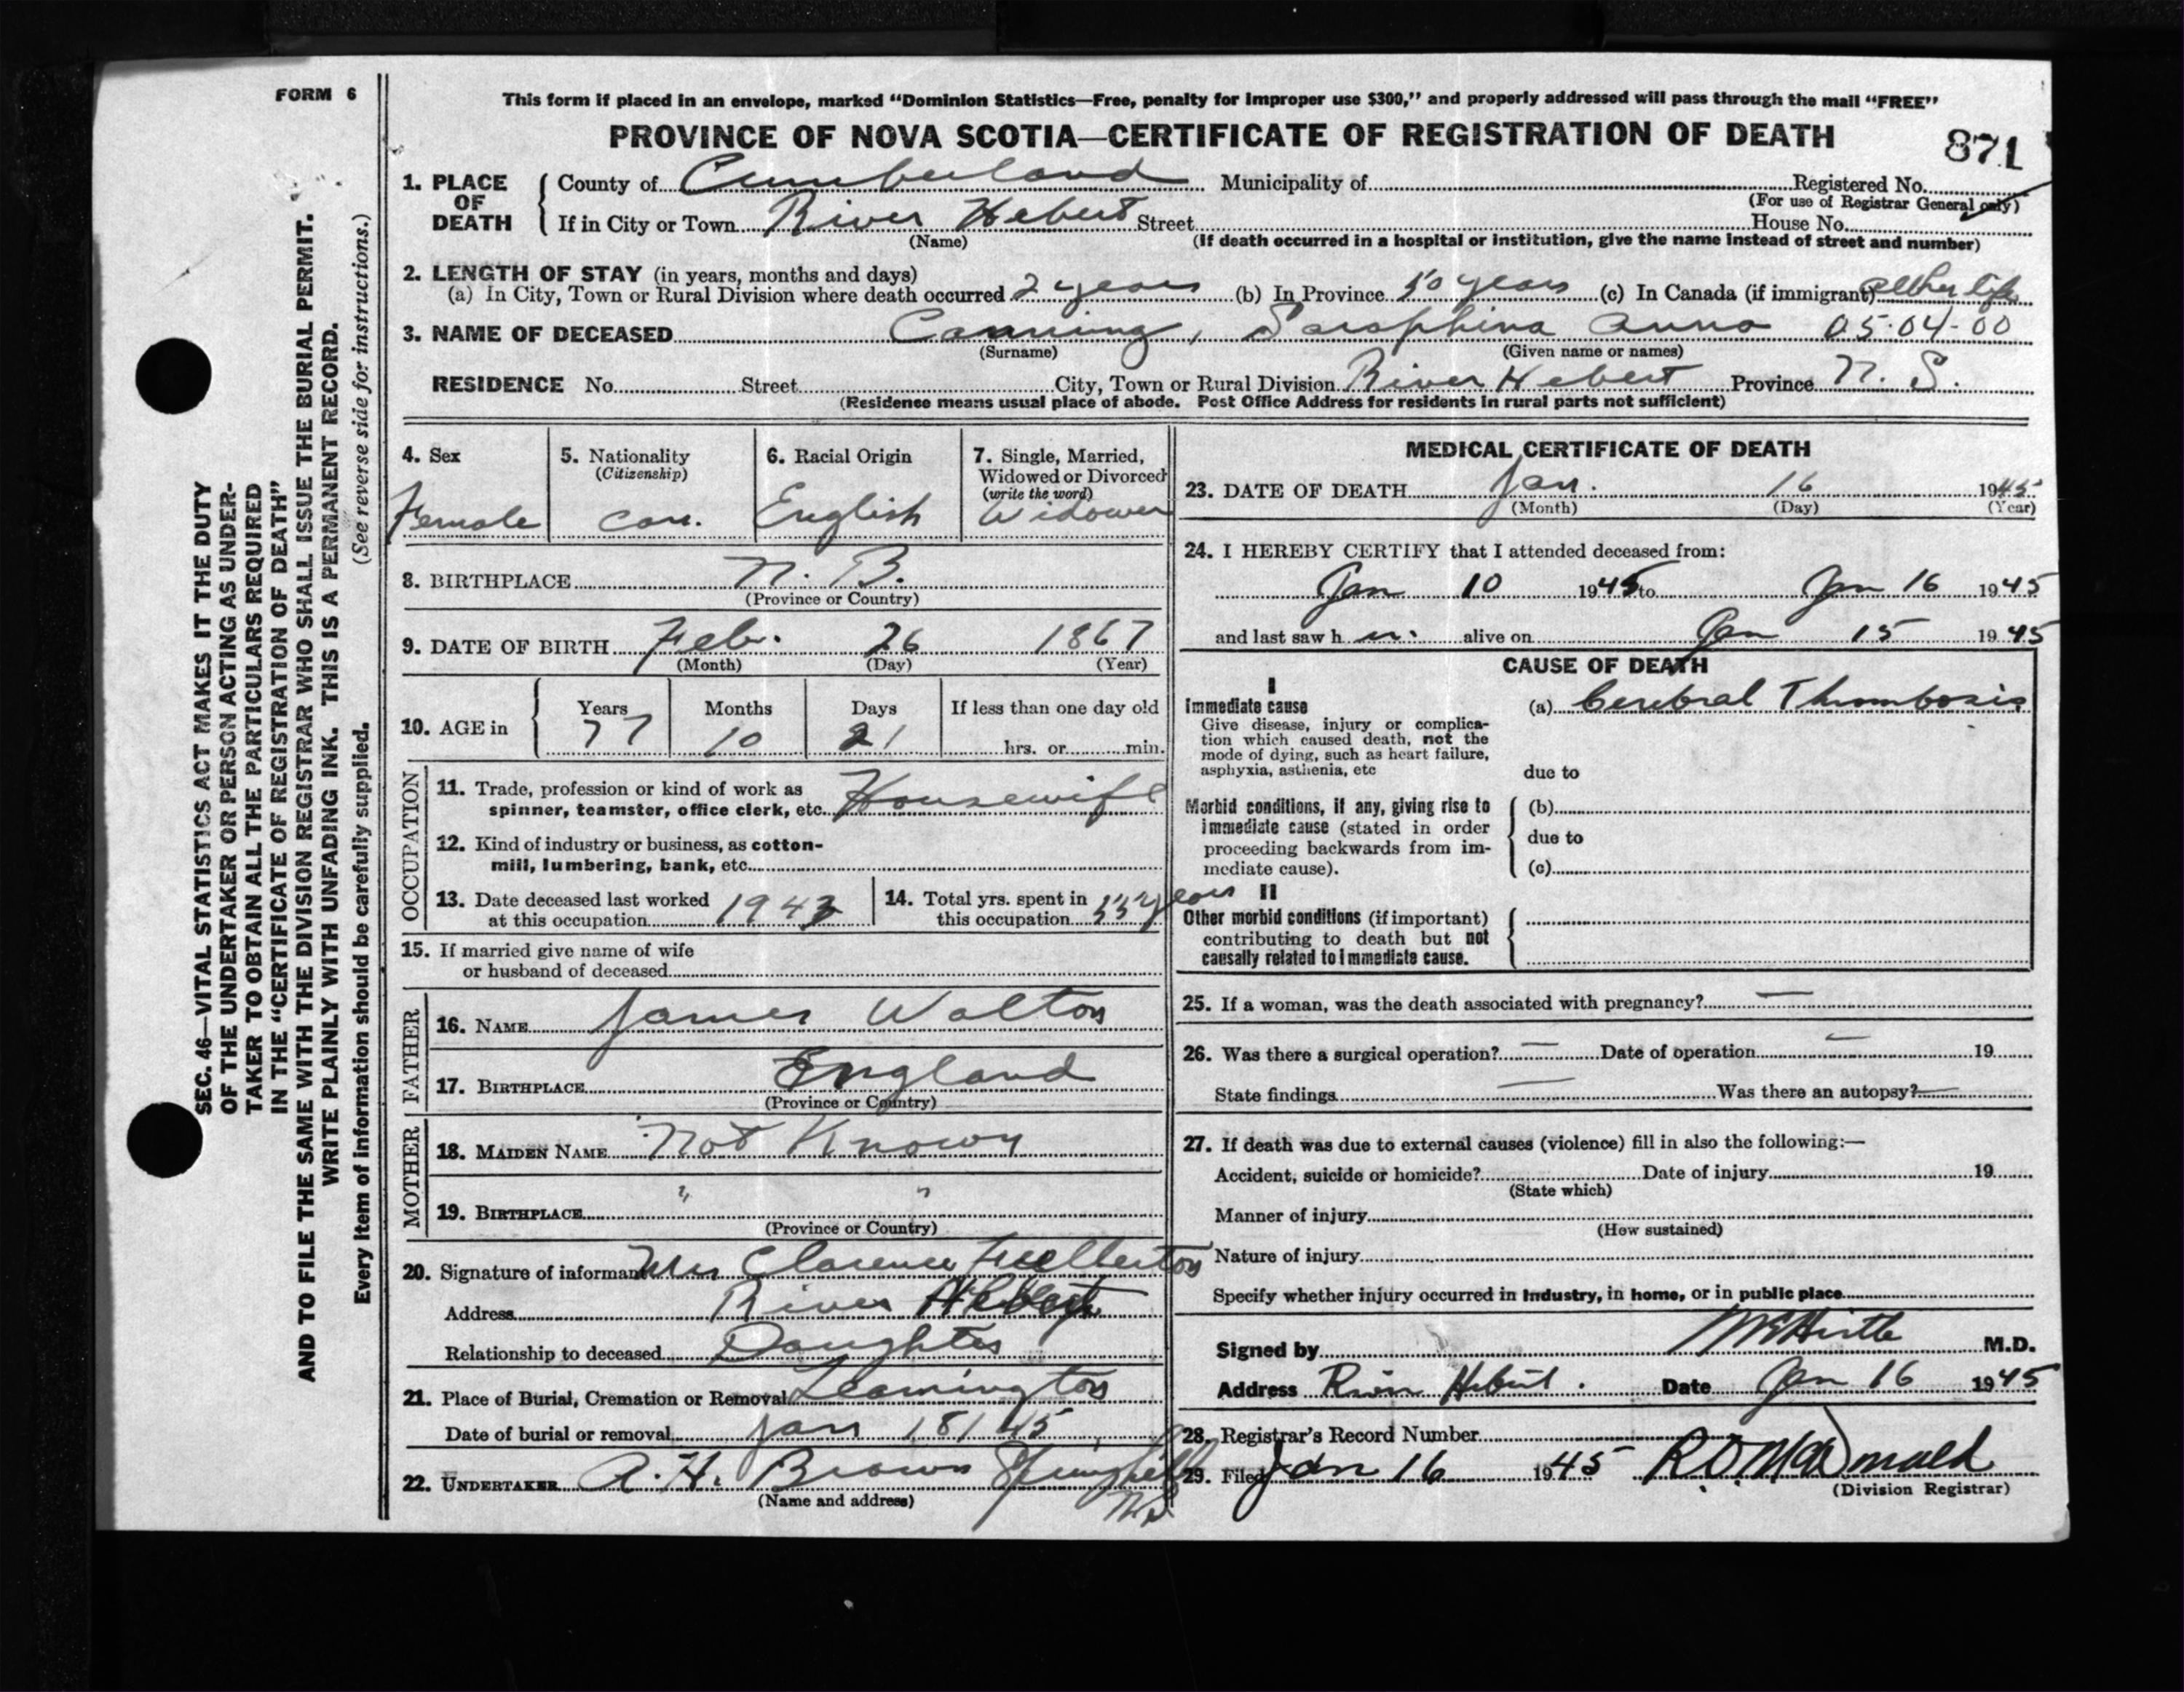 FORM 6
This form if placed in an envelope, marked “Dominion Statistics—Free, penalty for improper use $300,” and properly addressed will pass through the mail “FREE”
PROVINCE OF NOVA SCOTIA—CERTIFICATE OF REGISTRATION OF DEATH
871
1. PLACE OF DEATH
County of Cumberland Municipality of Registered No.
(For use of Registrar General only)
If in City or Town River Hebert Street House No.
(Name) (If death occurred in a hospital or institution, give the name instead of street and number)
2. LENGTH OF STAY (in years, months and days)
(a) In City, Town or Rural Division where death occurred 2 years (b) In Province 50 years (c) In Canada (if immigrant) all her life
3. NAME OF DECEASED Canning, Seraphina Anna 05-04-00
(Surname) (Given name or names)
RESIDENCE No. Street City, Town or Rural Division River Hebert Province N. S.
(Residence means usual place of abode. Post Office Address for residents in rural parts not sufficient)
4. Sex
Female
5. Nationality
(Citizenship)
Can.
6. Racial Origin
English
7. Single, Married,
Widowed or Divorced
(write the word)
Widower
8. BIRTHPLACE N. B.
(Province or Country)
9. DATE OF BIRTH Feb. 26 1867
(Month) (Day) (Year)
10. AGE in
Years Months Days If less than one day old
77 10 21 hrs. or min.
OCCUPATION
11. Trade, profession or kind of work as
spinner, teamster, office clerk, etc. Housewife
12. Kind of industry or business, as cotton-
mill, lumbering, bank, etc.
13. Date deceased last worked
at this occupation 1943
14. Total yrs. spent in
this occupation 55 years
15. If married give name of wife
or husband of deceased
FATHER
16. NAME James Walton
17. BIRTHPLACE England
(Province or Country)
MOTHER
18. MAIDEN NAME Not Known
19. BIRTHPLACE " "
(Province or Country)
20. Signature of informant Mrs Clarence Fullerton
Address River Hebert
Relationship to deceased Daughter
21. Place of Burial, Cremation or Removal Leamington
Date of burial or removal Jan 18/45
22. UNDERTAKER A. H. Brown Springhill
NS
(Name and address)
MEDICAL CERTIFICATE OF DEATH
23. DATE OF DEATH Jan. 16 1945
(Month) (Day) (Year)
24. I HEREBY CERTIFY that I attended deceased from:
Jan 10 1945 to Jan 16 1945
and last saw h er alive on Jan 15 1945
CAUSE OF DEATH
I
Immediate cause
Give disease, injury or complica-
tion which caused death, not the
mode of dying, such as heart failure,
asphyxia, asthenia, etc
(a) Cerebral Thrombosis
due to
Morbid conditions, if any, giving rise to
immediate cause (stated in order
proceeding backwards from im-
mediate cause).
(b)
due to
(c)
II
Other morbid conditions (if important)
contributing to death but not
causally related to immediate cause.
25. If a woman, was the death associated with pregnancy? —
26. Was there a surgical operation? — Date of operation — 19
State findings — Was there an autopsy? —
27. If death was due to external causes (violence) fill in also the following:—
Accident, suicide or homicide? Date of injury 19
(State which)
Manner of injury
(How sustained)
Nature of injury
Specify whether injury occurred in industry, in home, or in public place
Signed by M.D.
Address River Hebert. Date Jan 16 1945
28. Registrar's Record Number
29. Filed Jan 16 1945 R D MacDonald
(Division Registrar)
SEC. 46—VITAL STATISTICS ACT MAKES IT THE DUTY
OF THE UNDERTAKER OR PERSON ACTING AS UNDER-
TAKER TO OBTAIN ALL THE PARTICULARS REQUIRED
IN THE “CERTIFICATE OF REGISTRATION OF DEATH”
AND TO FILE THE SAME WITH THE DIVISION REGISTRAR WHO SHALL ISSUE THE BURIAL PERMIT.
WRITE PLAINLY WITH UNFADING INK. THIS IS A PERMANENT RECORD.
Every item of information should be carefully supplied. (See reverse side for instructions.)